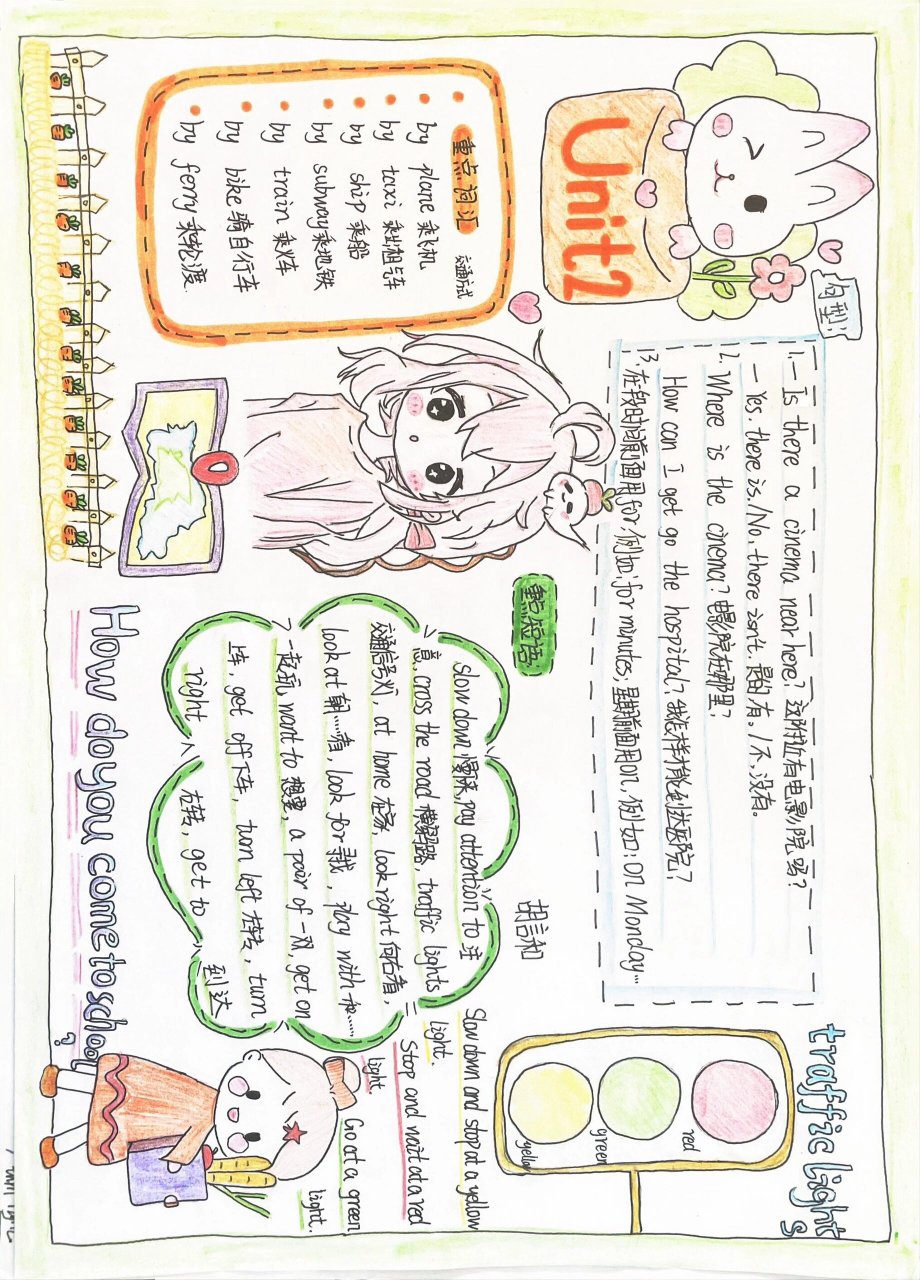 Unit2
重点词汇 交通方式
by plane 乘飞机
by taxi 乘出租车
by ship 乘船
by subway 乘地铁
by train 乘火车
by bike 骑自行车
by ferry 乘轮渡
句型:
1.—Is there a cinema near here? 这附近有电影院吗?
—Yes, there is./No, there isn't. 是的,有。/不,没有。
2. Where is the cinema? 电影院在哪里?
How can I get go the hospital? 我怎样才能到达医院?
3.在段时间前面用for,例如:for minutes,星期前面用on,例如:on Monday...
重点短语
slow down 慢下来,pay attention to 注
意,cross the road 横穿马路,traffic lights
交通信号灯,at home 在家,look right 向右看,
look at 朝……看,look for 寻找,play with 和……
一起玩,want to 想要,a pair of 一双,get on
上车,get off 下车,turn left 左转,turn
right 右转,get to 到达
traffic lights
red
green
yellow
Slow down and stop at a yellow
light.
Stop and wait at a red
light.
Go at a green
light.
How do you come to school?